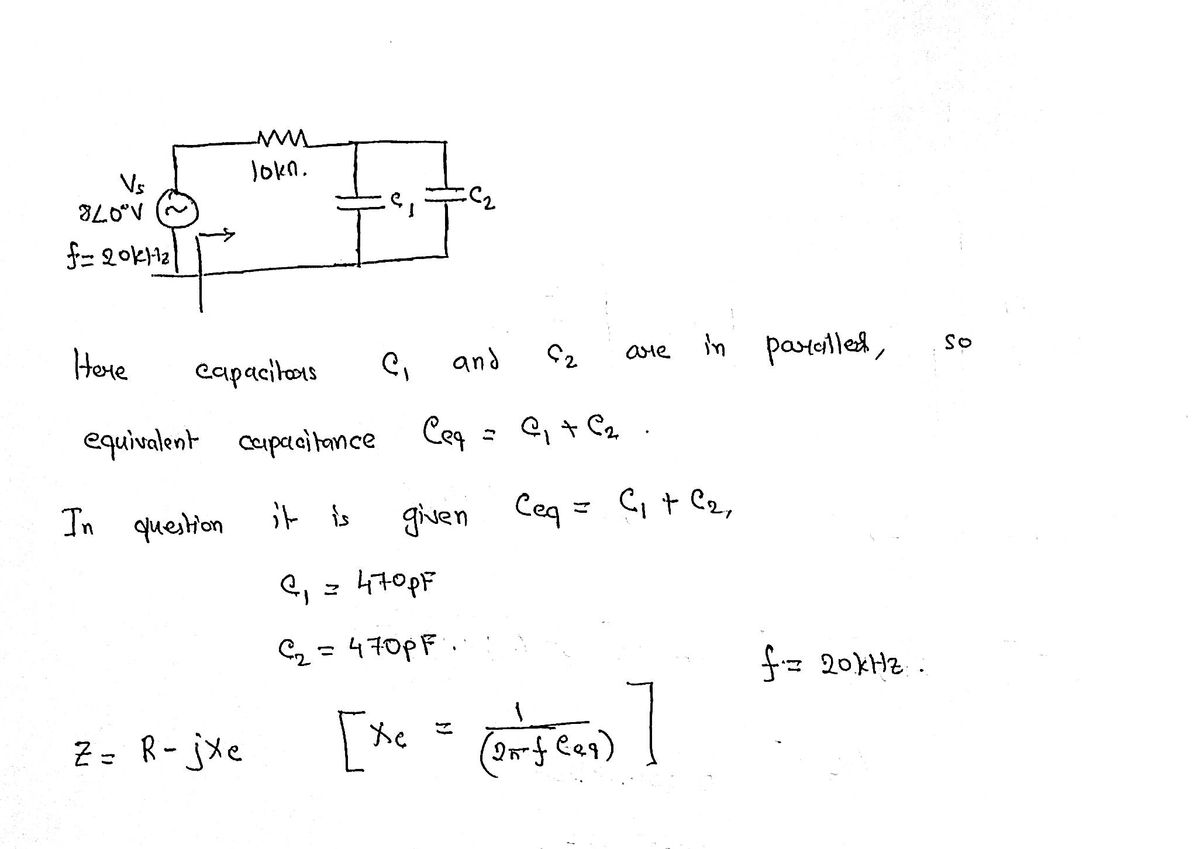 10kΩ.
Vs
8∠0°V
f = 20kHz
C₁
C₂
Here capacitors C₁ and C₂ are in parallel, so
equivalent capacitance Ceq = C₁ + C₂ .
In question it is given Ceq = C₁ + C₂,
C₁ = 470pF
C₂ = 470pF .
f = 20kHz .
Z = R - jXc [ Xc = 1/(2πf Ceq) ]